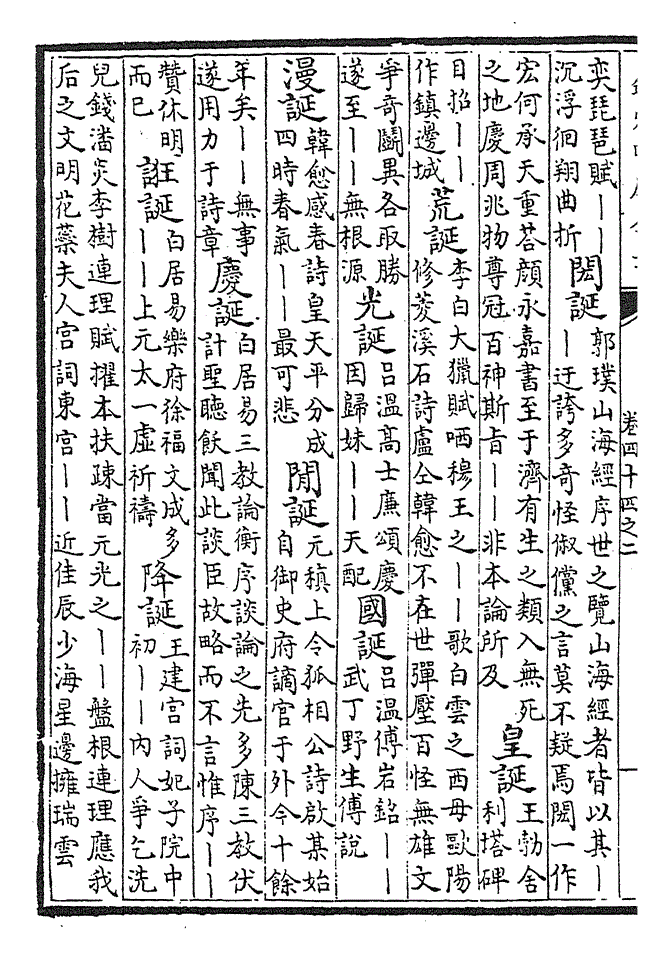 卷四十四之二
一
奕琵琶賦丨丨
沉浮徊翔曲折
閎誕
郭璞山海經序世之覽山海經者皆以其丨
丨迂誇多奇怪俶儻之言莫不疑焉閎一作
宏何承天重荅顏永嘉書至于濟有生之類入無死
之地慶周兆物尊冠百神斯旨丨丨非本論所及
皇誕
王勃舍
利塔碑
目招丨丨
作鎮邊城
荒誕
李白大獵賦哂穆王之丨丨歌白雲之西母歐陽
修菱溪石詩盧仝韓愈不在世彈壓百怪無雄文
爭奇鬭異各取勝
遂至丨丨無根源
光誕
呂溫高士廉頌慶
因歸妹丨丨天配
國誕
呂溫傅岩銘丨丨
武丁野生傅說
漫誕
韓愈感春詩皇天平分成
四時春氣丨丨最可悲
閒誕
元稹上令狐相公詩啟某始
自御史府謫官于外今十餘
年矣丨丨無事
遂用力于詩章
慶誕
白居易三教論衡序談論之先多陳三教伏
計聖聽飫聞此談臣故略而不言惟序丨丨
贊休明
而已
誑誕
白居易樂府徐福文成多
丨丨上元太一虛祈禱
降誕
王建宮詞妃子院中
初丨丨內人爭乞洗
兒錢潘炎李樹連理賦擢本扶疎當元光之丨丨盤根連理應我
后之文明花蘂夫人宮詞東宮丨丨近佳辰少海星邊擁瑞雲